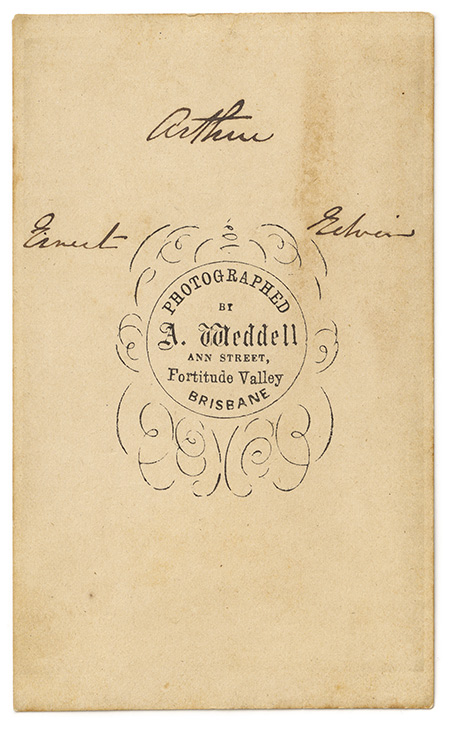 Arthur
Ernest Edwin
PHOTOGRAPHED
BY
A. Weddell
ANN STREET,
Fortitude Valley
BRISBANE